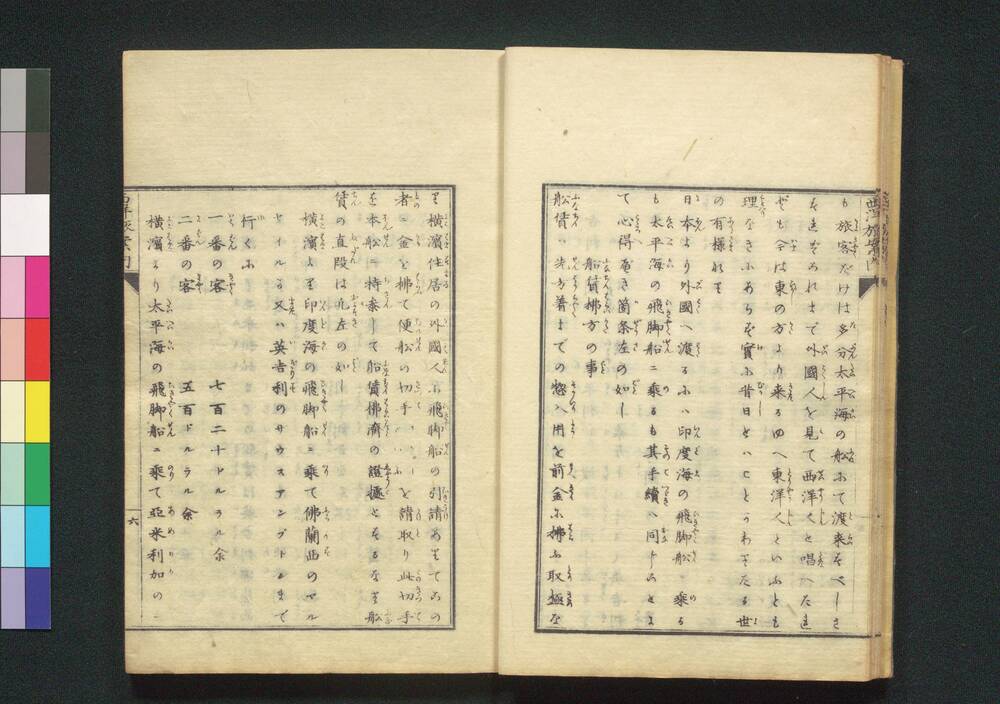 も旅客だけは多分太平海の船にて渡来すべしさ
すれば是まで外国人を見て西洋人と唱へたれ
ども今は東の方より来るゆへ東洋人といふとも
理なきにあらず實に昔日とハことかわきたる世
の有様なり
日本より外國へ渡るにハ印度海の飛脚船ニ乗る
も太平海の飛脚船ニ乗るも其手續ハ同じことに
て心得べき箇条左の如し
船賃拂方の事
船賃ハ先方着までの惣入用を前金に拂ふ取極な
り横濱住居の外國人に飛脚船の引請ありてこの
者ニ金を拂て便船の切手
を請取り此切手
を本船に持参して船賃拂濟の證據とするなり船
賃の直段は凡左の如し
横濱より印度海の飛脚船ニ乗て佛蘭西のマル
セイルヌ又ハ英吉利のサウスアンプトンまで
行くに
一番の客 七百二十ドルラル余
二番の客 五百ドルラル余
横濱より太平海の飛脚船ニ乗て亞米利加の
西洋旅案内
六